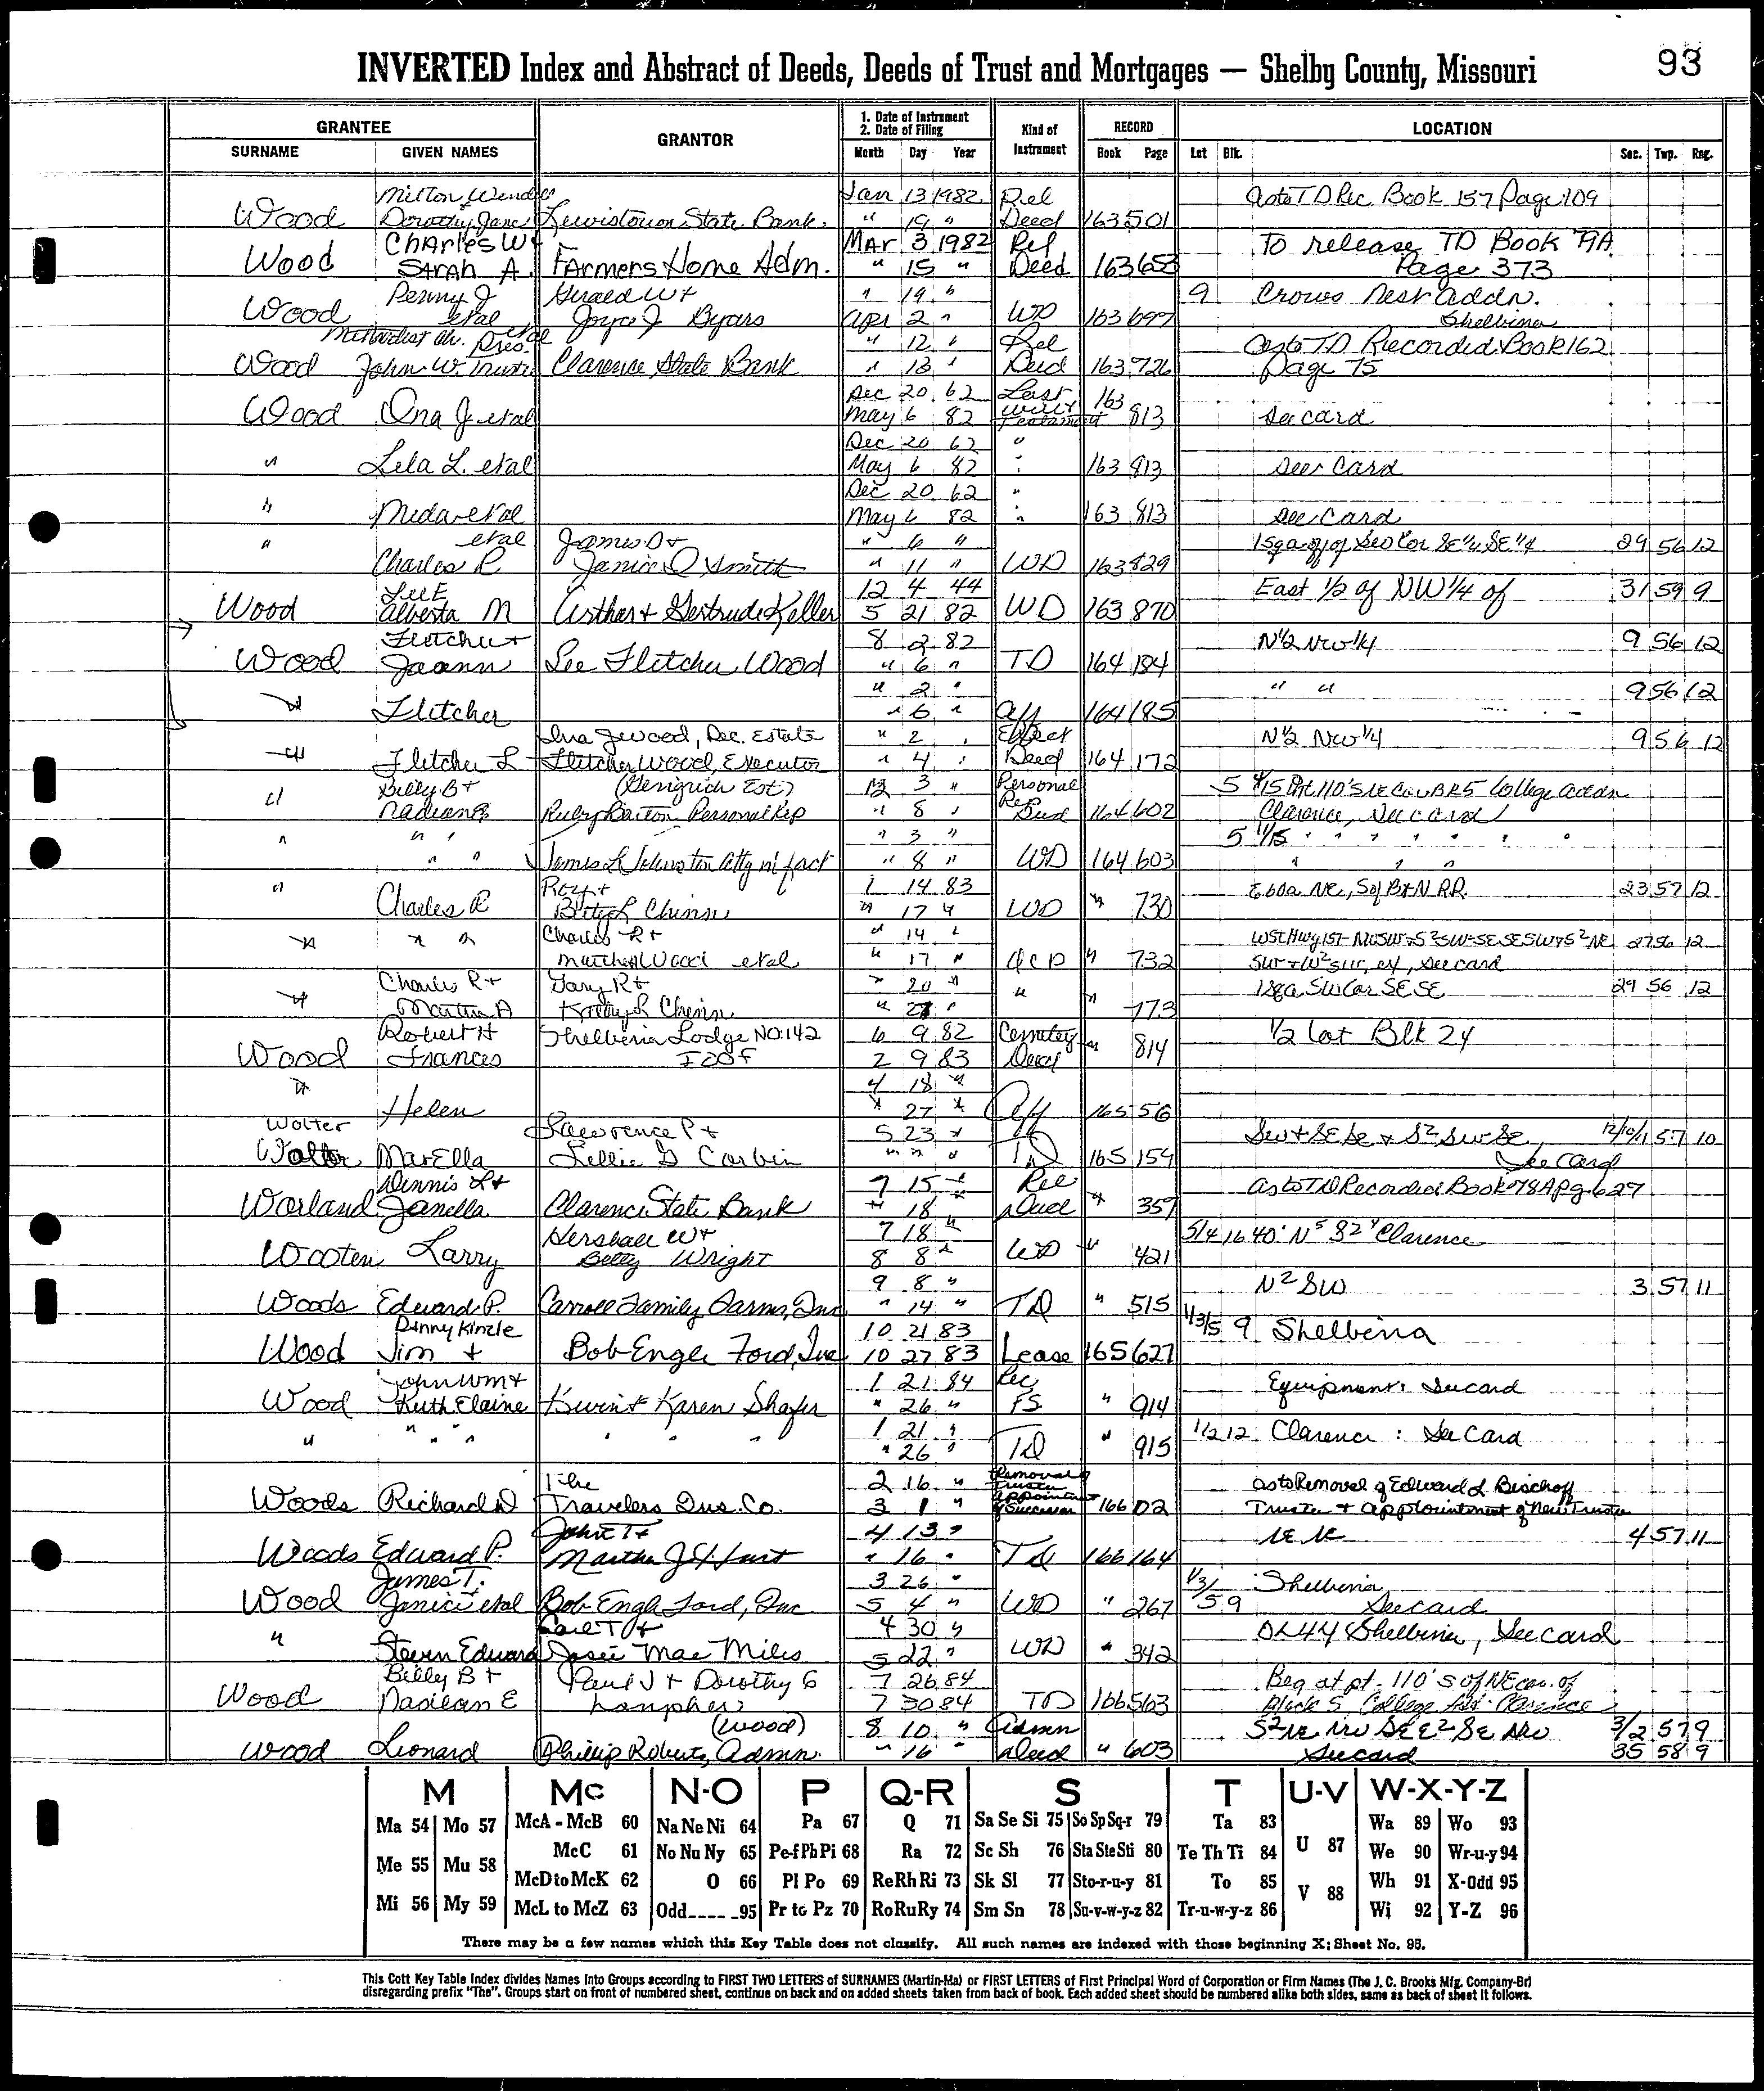 INVERTED Index and Abstract of Deeds, Deeds of Trust and Mortgages — Shelby County, Missouri 93
GRANTEE GRANTOR 1. Date of Instrument 2. Date of Filing Kind of Instrument RECORD LOCATION
SURNAME GIVEN NAMES Month Day Year Book Page Lot Blk. Sec. Twp. Rng.
Milton Wendell Jan 13 1982 Rel as to TD Rec Book 157 Page 109
Wood Dorothy Jane Lewistown State Bank. " 19 " Deed 163 501
Charles W + Mar 3 1982 Rel To release TD Book 79A
Wood Sarah A. Farmers Home Adm. " 15 " Deed 163 653 Page 373
Penny J Gerald W + " 19 " 9 Crows Nest Addn.
Wood etal Joyce J Byars Apr 2 " WD 163 697 Shelbina
Methodist Ch. Pres. etal " 12 " Rel as to TD Recorded Book 162
Wood John W. Trustee Clarence State Bank " 13 " Deed 163 726 Page 75
Dec 20 62 Last 163
Wood Ona J. etal May 6 82 Will + Testament 813 See card
Dec 20 62 "
" Lela L. etal May 6 82 " 163 813 See Card
Dec 20 62 "
" Meda etal May 6 82 " 163 813 See Card
" etal James D + " 6 " 29 56 12
Charles R. Janice D Smith " 11 " WD 163 829
Lee E 12 4 44 East 1/2 of NW 1/4 of 31 59 9
Wood Alberta M Arthur + Gertrude Keller 5 21 82 WD 163 870
Fletcher + 8 2 82 N1/2 NW1/4 9 56 12
Wood Joann See Fletcher Wood " 6 " TD 164 184
" 2 " " " 9 56 12
" Fletcher " 6 " Aff 164 185
Ona J Wood, Dec. Estate " 2 " N1/2 NW1/4 9 56 12
" Fletcher L Fletcher Wood, Executor " 4 " Deed 164 172
Billy B + 12 3 " Personal 5
Nadean E Ruby Barton Personal Rep " 8 " Rep Deed 164 602 Clarence, See card
" " " " 3 " 5
" " James L Johnston Atty in fact " 8 " WD 164 603
" Roy + 1 14 83 E 60a NE, S of B+N RR. 23 57 12
Charles R Betty L Chinn " 17 " WD " 730
" " " Charles R + " 14 " 27 56 12
Martha Wood etal " 17 " QCD " 732
Charles R + Gary R + " 20 " " SW Cor SE SE 29 56 12
" Martha A Kathy L Chinn " 21 " " 773
Robert H Shelbina Lodge No. 142 6 9 82 Cemetery 1/2 Lot Blk 24
Wood Frances IOOF 2 9 83 Deed " 814
" 4 18 "
Helen " 27 " Aff 165 56
Wolter Lawrence P + 5 23 " SW + SE SE + S2 SW SE, 57 10
Walter MarElla Lellie G Corbin " " " TD 165 154 See Card
Dennis L + 7 15 " Rel as to TD Recorded Book 78A Pg 627
Worland Janella Clarence State Bank " 18 Deed " 357
Hershall W + 7 18 " 5/4 16 40' N 5 82' Clarence
Wooten Larry Betty Wright 8 8 " WD " 421
9 8 " N2 SW 3 57 11
Woods Edward P. Carroll Family Farms, Inc " 14 " TD " 515
Penny Kinzle 10 21 83 1/3/5 9 Shelbina
Wood Jim + Bob Engle Ford, Inc 10 27 83 Lease 165 627
John Wm + 1 21 84 Rec Equipment: See card
Wood Ruth Elaine Kevin + Karen Shafer " 26 " FS " 914
" " " " " " " 1 21 " 1/2 12 Clarence : See Card
" 26 " TD " 915
The 2 16 " Removal of Trustee as to Removal of Edward L Bischoff
Woods Richard D Travelers Ins. Co. 3 1 " Appointment of Successor 166 02 Trustee + appointment of New Trustee
John T + 4 13 " NE NE 4 57 11
Woods Edward P. Martha J Hunt " 16 " TD 166 164
James T. 3 26 " 1/3/ Shelbina,
Wood Janice etal Bob Engle Ford, Inc 5 4 " WD " 267 5 9 See card
" Earl T + 4 30 " OL 44 Shelbina, See card
Steven Edward Josie Mae Miles 5 22 " WD " 342
Billy B + Paul J + Dorothy G 7 26 84 Beg at pt. 110' S of NE cor. of
Wood Nadean E Lanpher 7 30 84 TD 166 563 Block 5, College Add. Clarence
(Wood) 8 10 " Admn S2 NE NW SE E2 SE NW 3/2 57 9
Wood Leonard Phillip Roberts, Admn. " 16 " Deed " 603 See card 35 58 9
M Mc N-O P Q-R S T U-V W-X-Y-Z
Ma 54 Mo 57 McA - McB 60 Na Ne Ni 64 Pa 67 Q 71 Sa Se Si 75 So Sp Sq-r 79 Ta 83 U 87 Wa 89 Wo 93
Me 55 Mu 58 McC 61 No Nu Ny 65 Pe-f Ph Pi 68 Ra 72 Sc Sh 76 Sta Ste Sti 80 Te Th Ti 84 V 88 We 90 Wr-u-y 94
McD to McK 62 O 66 Pl Po 69 Re Rh Ri 73 Sk Sl 77 Sto-r-u-y 81 To 85 Wh 91 X-Odd 95
Mi 56 My 59 McL to McZ 63 Odd---- -95 Pr to Pz 70 Ro Ru Ry 74 Sm Sn 78 Su-v-w-y-z 82 Tr-u-w-y-z 86 Wi 92 Y-Z 96
There may be a few names which this Key Table does not classify. All such names are indexed with those beginning X; Sheet No. 95.
This Cott Key Table Index divides Names Into Groups according to FIRST TWO LETTERS of SURNAMES (Martin-Ma) or FIRST LETTERS of First Principal Word of Corporation or Firm Names (The J. C. Brooks Mfg. Company-Br)
disregarding prefix "The". Groups start on front of numbered sheet, continue on back and on added sheets taken from back of book. Each added sheet should be numbered alike both sides, same as back of sheet it follows.